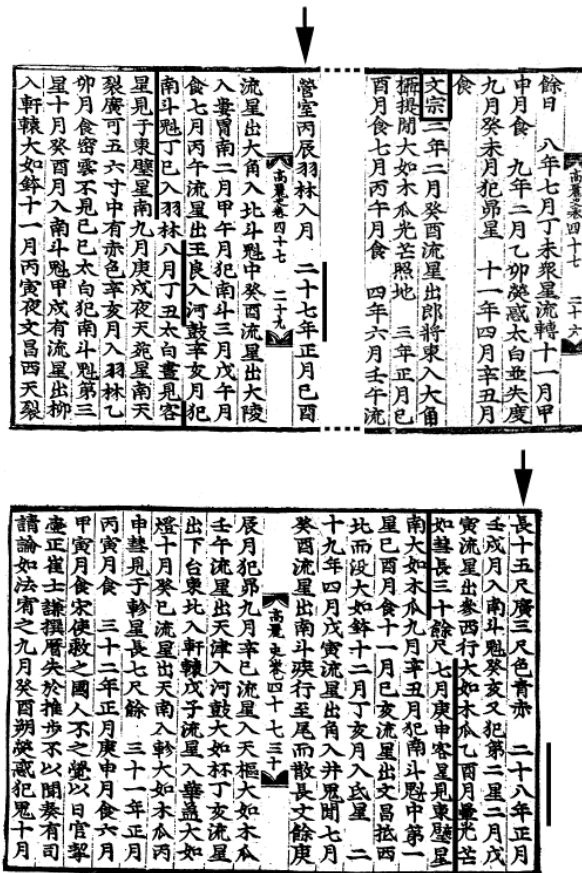 高麗史卷四十七 二十六
餘日 八年七月丁未衆星流轉十一月甲
申月食 九年二月乙卯熒惑太白並失度
九月癸未月犯昴星 十一年四月辛丑月
食
文宗二年二月癸酉流星出郎將東入大角
攝提閒大如木瓜光芒照地 三年正月己
酉月食七月丙午月食 四年六月壬午流
營室丙辰羽林入月 二十七年正月己酉
高麗史卷四十七 二十九
流星出大角入北斗魁中癸酉流星出大陵
入婁胃南二月甲午月犯南斗三月戊午月
食七月丙午流星出王良入河鼓辛亥月犯
南斗魁丁巳入羽林八月丁丑太白晝見客
星見于東壁星南九月庚戌夜天苑星南天
裂廣可五六寸中有赤色辛亥月入羽林乙
卯月食密雲不見己巳太白犯南斗魁第三
星十月癸酉月入南斗魁甲戌有流星出柳
入軒轅大如鉢十一月丙寅夜文昌西天裂
長十五尺廣三尺色青赤 二十八年正月
壬戌月入南斗魁癸亥又犯第二星二月戊
寅流星出參西行大如木瓜乙酉月暈光芒
如彗長三十餘尺七月庚申客星見東壁星
南大如木瓜九月辛丑月犯南斗魁中第一
星己酉月食十一月己亥流星出文昌抵西
北而沒大如鉢十二月丁亥月入氐星 二
十九年四月戊寅流星出角入井鬼聞七月
癸酉流星出南斗疾行至尾而散長丈餘庚
高麗史卷四十七 三十
辰月犯昴九月辛巳流星入天樞大如木瓜
壬午流星出天津入河鼓大如杯丁亥流星
出下台東北入軒轅戊子流星入華蓋大如
燈十月癸巳流星出天南入軫大如木瓜丙
申彗見于軫星長七尺餘 三十一年正月
丙寅月食 三十二年正月庚申月食六月
甲寅月食宋使救之國人不之覺以日官挈
壺正崔士謙撰曆失於推步不以聞奏有司
請論如法宥之九月癸酉朔熒惑犯鬼十月